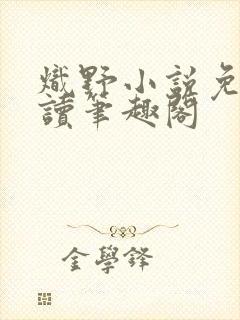 熾野小說免
讀筆趣閣
金學鋒